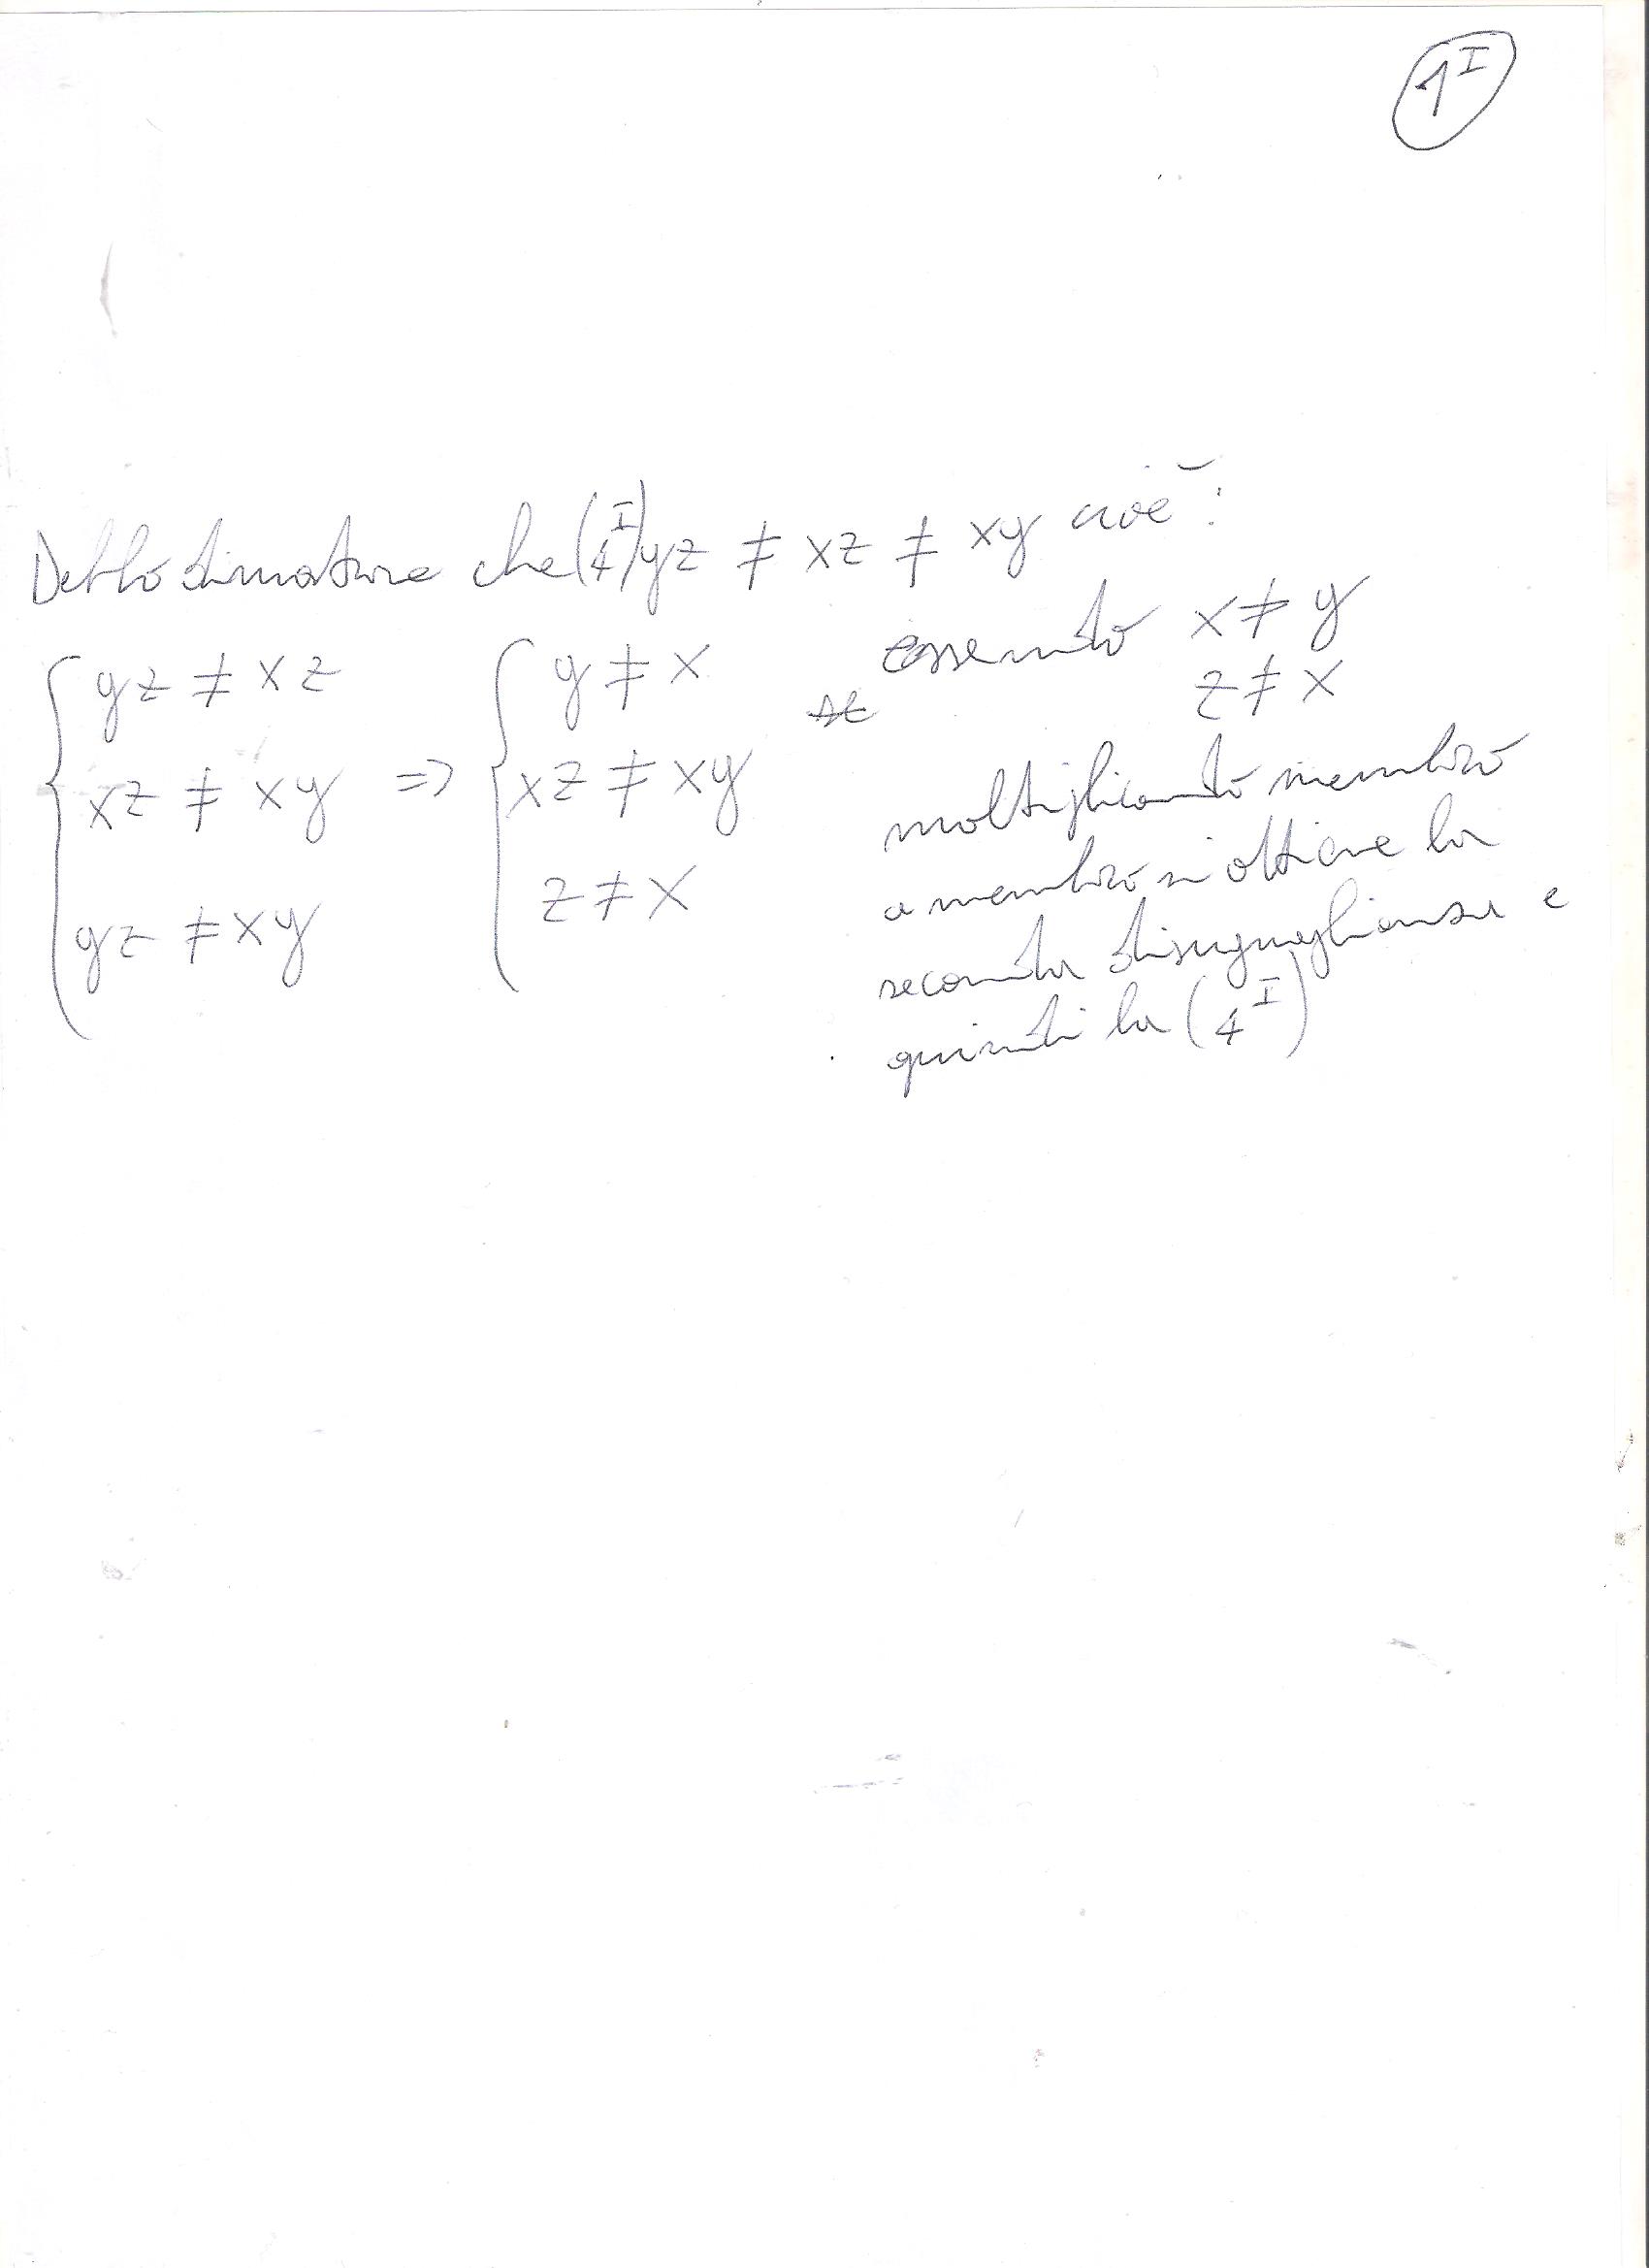 1^I
Debbo dimostrare che (4^I) yz ≠ xz ≠ xy cioè:
{ yz ≠ xz
xz ≠ xy
yz ≠ xy
=> { y ≠ x
xz ≠ xy
z ≠ x
se essendo x ≠ y
z ≠ x
moltiplicando membro
a membro si ottiene la
seconda disuguaglianza e
quindi la (4^I)